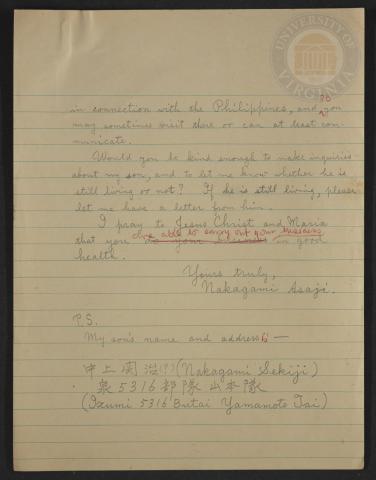 UNIVERSITY OF VIRGINIA
in connection with the Philippines, and so you
may sometimes visit there or can at least com-
municate.
Would you be kind enough to make inquiries
about my son, and to let me know whether he is
still living or not? If he is still living, please
let me have a letter from him.
I pray to Jesus Christ and Maria
are able to carry out your missions
that you do your in good
health.
Yours truly,
Nakagami Asaji.
P.S.
My son's name and address: —
中上関治(?) (Nakagami Sekiji)
泉5316部隊山本隊
(Izumi 5316 Butai Yamamoto Tai)